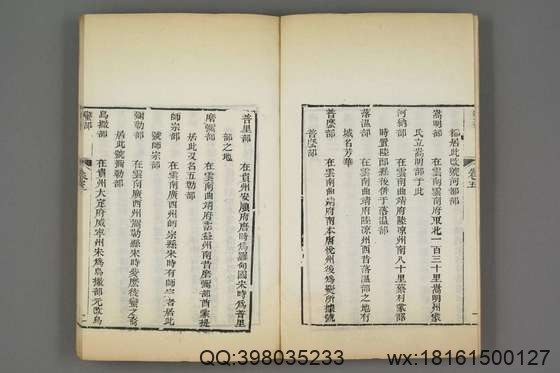 徭居此改號河部部
嵩明部 在雲南府東北一百三十里嵩明州蒙
氏立嵩明部于此
河納部 在雲南曲靖府陸涼州南八十里蔡村蒙
時置陸郡縣後併于落溫部
落溫部 在雲南曲靖府陸涼州西昔落溫部之地有
城名芳華
普麼部 在雲南曲靖府南本唐悅州後為蠻所據號
普麼部
普里部 在貴州安順府唐時為羅甸國宋時為普里
部之地
磨彌部 在雲南曲靖府霑益州南昔麼彌部酋蒙提
居此又名五勒部
師宗部 在雲南廣西州師宗縣宋時有師宗者居此
號師宗部
彌勒部 在雲南廣西州彌勒縣宋時些麼徒蠻之裔
居此號彌勒部
烏撒部 在貴州大定府威寧州宋為烏撒部元改烏
QQ:398035233
wx:18161500127